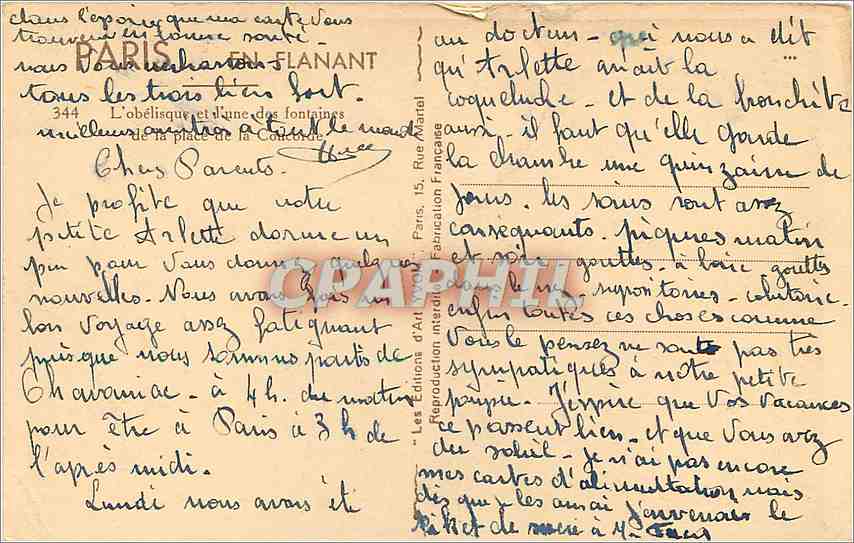 dans l'espoir que ma carte vous
trouvera en bonne santé.
nous vous embrassons
tous les trois bien fort.
meilleurs à tout le monde
PARIS EN FLANANT
344 L'obélisque et l'une des fontaines
de la place de la Concorde
Chers Parents.
Je profite que notre
petite Arlette dorme un
peu pour vous donner quelques
nouvelles. Nous avons fait un
bon voyage assez fatiguant
puisque nous sommes partis de
Chavaniac à 4h. du matin
pour être à Paris à 3h de
l'après midi.
Lundi nous avons été
"Les Editions d'Art "YVON", Paris, 15, Rue Martel
Reproduction interdite. Fabrication Française
au docteur - qui nous a dit
qu'Arlette avait la
coqueluche - et de la bronchite
aussi - il faut qu'elle garde
la chambre une quinzaine de
jours. les soins sont assez
conséquants. piqures matin
et soir - gouttes - à boire, gouttes
dans le nez, suppositoires - collutoire -
enfin toutes ces choses comme
vous le pensez ne sont pas très
sympatiques à notre petite
poupée. J'espère que vos vacances
se passent bien - et que vous avez
du soleil - je n'ai pas encore
mes cartes d'alimentation mais
dès que je les aurai j'enverrai le
ticket de à M.
CPAPHIL